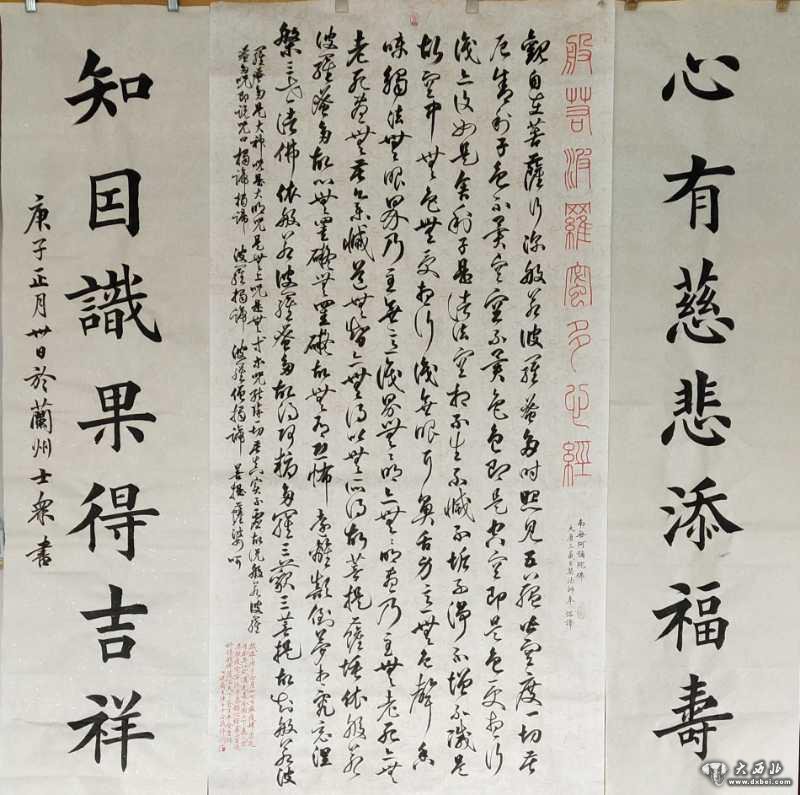 心有慈悲添福壽
般若波羅蜜多心經
南無阿彌陀佛
大唐三藏玄奘法師奉詔譯
觀自在菩薩行深般若波羅蜜多時照見五蘊皆空度一切苦
厄舍利子色不異空空不異色色即是空空即是色受想行
識亦復如是舍利子是諸法空相不生不滅不垢不淨不增不減是
故空中無色無受想行識無眼耳鼻舌身意無色聲香
味觸法無眼界乃至無意識界無無明亦無無明盡乃至無老死亦無
老死盡無苦集滅道無智亦無得以無所得故菩提薩埵依般若
波羅蜜多故心無罣礙無罣礙故無有恐怖遠離顛倒夢想究竟涅
槃三世諸佛依般若波羅蜜多故得阿耨多羅三藐三菩提故知般若波
羅蜜多是大神咒是大明咒是無上咒是無等等咒能除一切苦真實不虛故說般若波羅
蜜多咒即說咒曰揭諦揭諦 波羅揭諦 波羅僧揭諦 菩提薩婆訶
知囙識果得吉祥
庚子正月卅日於蘭州士眾書
大西北
www.dxbei.com